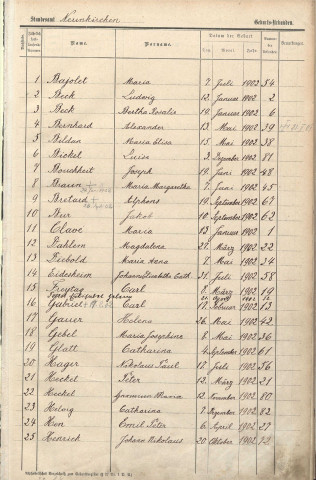 Standesamt Neunkirchen Geburts-Urkunden.
Name. Vorname. Datum der Geburt Bemerkungen.
Tag Monat Jahr
1 Bajolet Maria 7 Juli 1902 54
2 Beck Ludwig 12 Januar 1902 2
3 Beck Bertha Rosalie 19 Januar 1902 6
4 Bernhard Alexander 13 Mai 1902 39
5 Beldan Maria Elisa 15 Mai 1902 38
6 Bickel Luise 3 Dezember 1902 81
7 Bouchkert Joseph 19 Juni 1902 48
8 Braun Maria Margaretha 7 Juni 1902 45
9 Bretard Alphons 19 September 1902 67
10 Bur Jakob 10 September 1902 62
11 Clave Maria 13 Januar 1902 1
12 Dahlem Magdalena 27 März 1902 22
13 Diebold Maria Anna 7 Mai 1902 34
14 Eidesheim Cath. 31 Juli 1902 58
15 Freytag Carl 8 März 1902 19
16 Gabriel Carl 17 Februar 1902 13
17 Gauer Helena 26 Mai 1902 42
18 Gebel Maria Josephine 8 Mai 1902 36
19 Glatt Catharina 4 September 1902 61
20 Hager Nikolaus Paul 17 Juli 1902 56
21 Heckel Peter 12 März 1902 21
22 Heckel Maria 12 November 1902 80
23 Helwig Catharina 7 Dezember 1902 82
24 Hen Emil Peter 6 April 1902 27
25 Henrich Johann Nikolaus 20 Oktober 1902 72